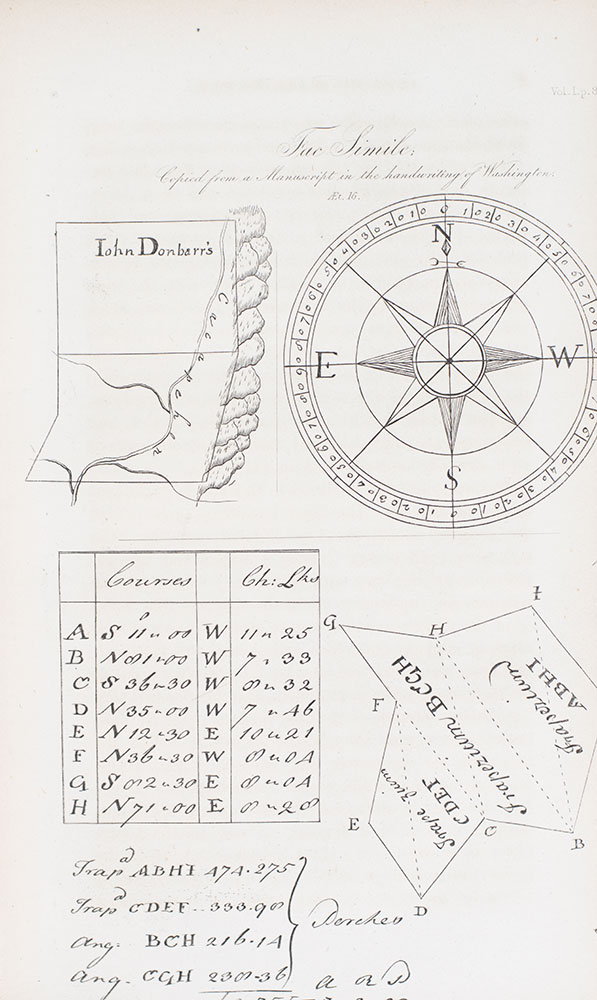 Vol. I. p. 8
Fac Simile;
Copied from a Manuscript in the handwriting of Washington.
Æt. 16.
Iohn Donbarr's
N
E
W
S
Courses Ch: Lks
A S 11 " 00 W 11 " 25
B N 81 " 00 W 7 " 33
C S 36 " 30 W 8 " 32
D N 35 " 00 W 7 " 46
E N 12 " 30 E 10 " 21
F N 36 " 30 W 8 " 04
G S 82 " 30 E 8 " 04
H N 71 " 00 E 8 " 28
G
H
I
F
E
D
C
B
Trapezium ABHI
Trapezium BCGH
Trapezium CDEF
Trapd ABHI 474.275
Trapd CDEF.. 333.98
Ang: BCH 216.14
Ang. CGH 230
Perches
a r P